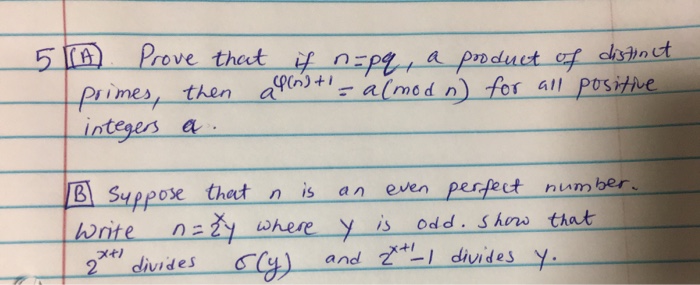 5 (A) Prove that if n=pq, a product of distinct
primes, then a^φ(n)+1 = a(mod n) for all positive
integers a.
B Suppose that n is an even perfect number.
Write n=2^x y where y is odd. Show that
2^x+1 divides σ(y) and 2^x+1-1 divides y.